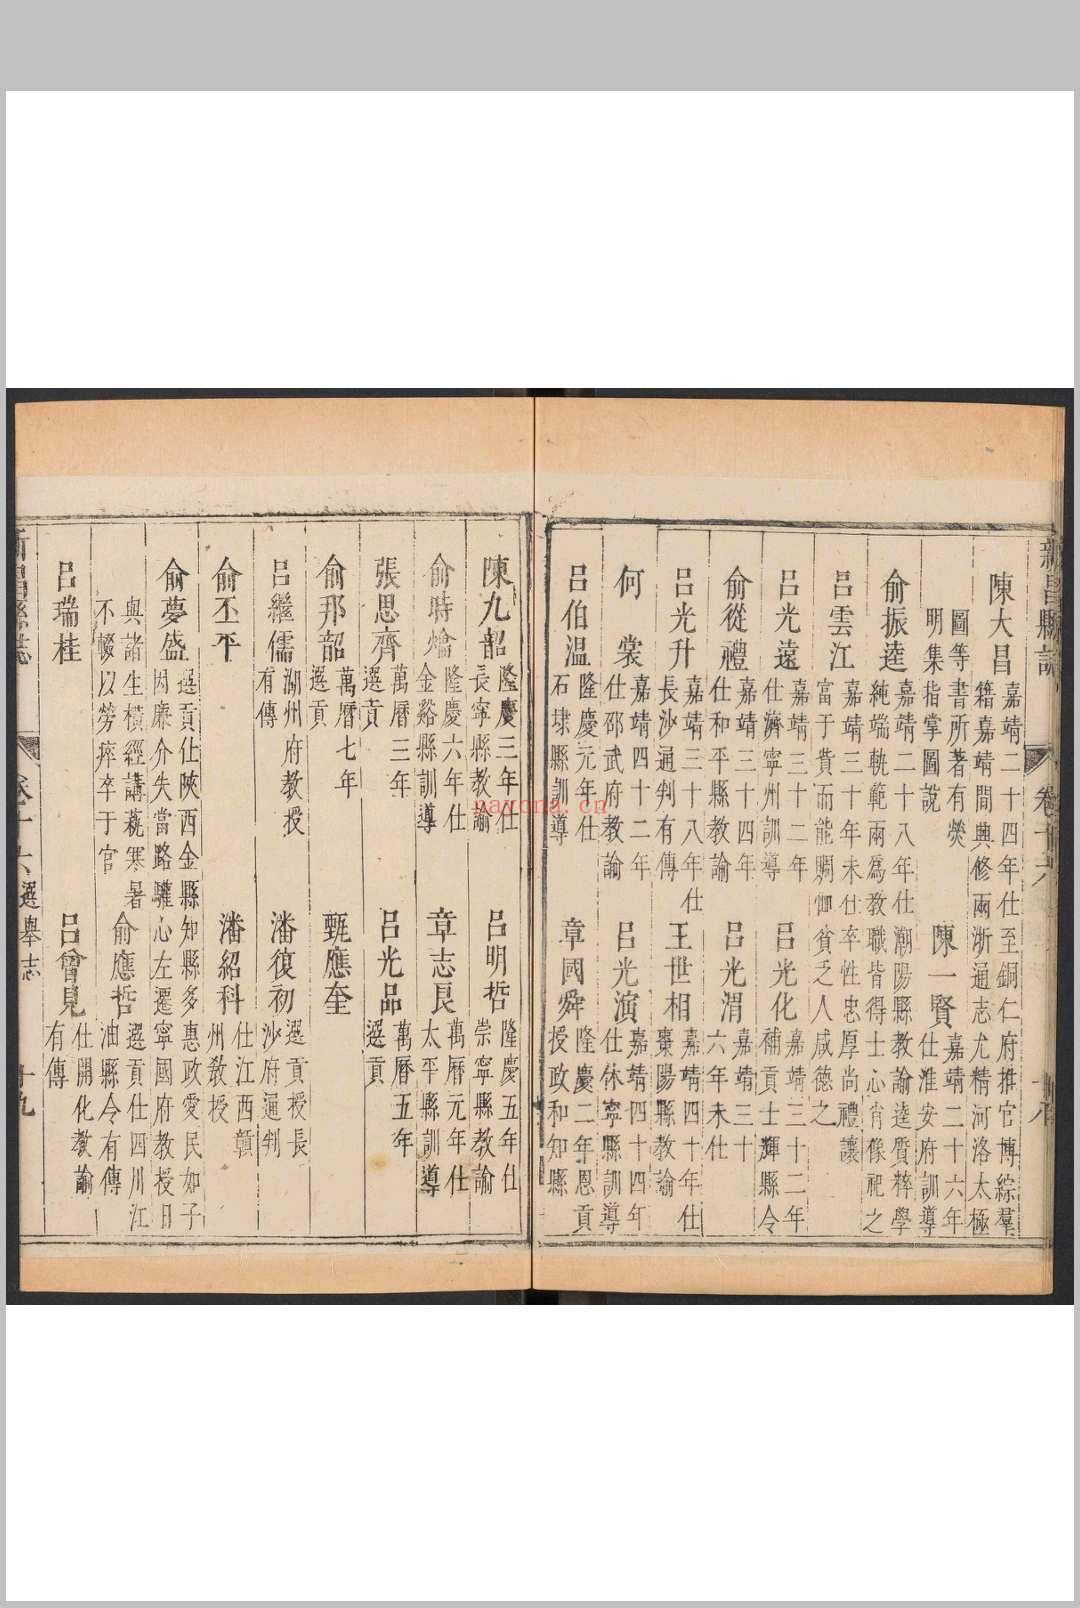 新昌縣誌
卷十六
陳大昌
嘉靖二十四年仕至銅仁府推官博綜羣
籍嘉靖間與修兩浙通志尤精河洛太極
圖等書所著有熒
明集指掌圖說
陳一賢
嘉靖二十六年
仕淮安府訓導
俞振逵
嘉靖二十八年仕潮陽縣教諭逵質粹學
純端軌範兩為教職皆得士心肖像祀之
呂雲江
嘉靖三十年未仕卒性忠厚尚禮讓
富于貲而能賙卹貧乏人咸德之
呂光遠
嘉靖三十二年
仕濟寧州訓導
呂光化
嘉靖三十二年
補貢士輝縣令
俞從禮
嘉靖三十四年
仕和平縣教諭
呂光渭
嘉靖三十
六年未仕
呂光升
嘉靖三十八年仕
長沙通判有傳
王世相
嘉靖四十年仕
棗陽縣教諭
何 裳
嘉靖四十二年
仕邵武府教諭
呂光演
嘉靖四十四年
仕休寧縣訓導
呂伯溫
隆慶元年仕
石埭縣訓導
章國舜
隆慶二年恩貢
授政和知縣
陳九韶
隆慶三年仕
長寧縣教諭
呂明哲
隆慶五年仕
崇寧縣教諭
俞時爚
隆慶六年仕
金谿縣訓導
章志良
萬曆元年仕
太平縣訓導
張思齊
萬曆三年
選貢
呂光品
萬曆五年
選貢
俞邦韶
萬曆七年
選貢
甄應奎
呂繼儒
湖州府教授
有傳
潘復初
選貢授長
沙府通判
俞丕平
潘紹科
仕江西贛
州教授
俞夢盛
選貢仕陝西金縣知縣多惠政愛民如子
因廉介失當路驩心左遷寧國府教授日
與諸生橫經講蓺寒暑
不輟以勞瘁卒于官
俞應哲
選貢仕四川江
油縣令有傳
呂瑞桂
呂曾見
仕開化教諭
有傳
新昌縣誌
卷十六
選舉志
十九
nayona.cn